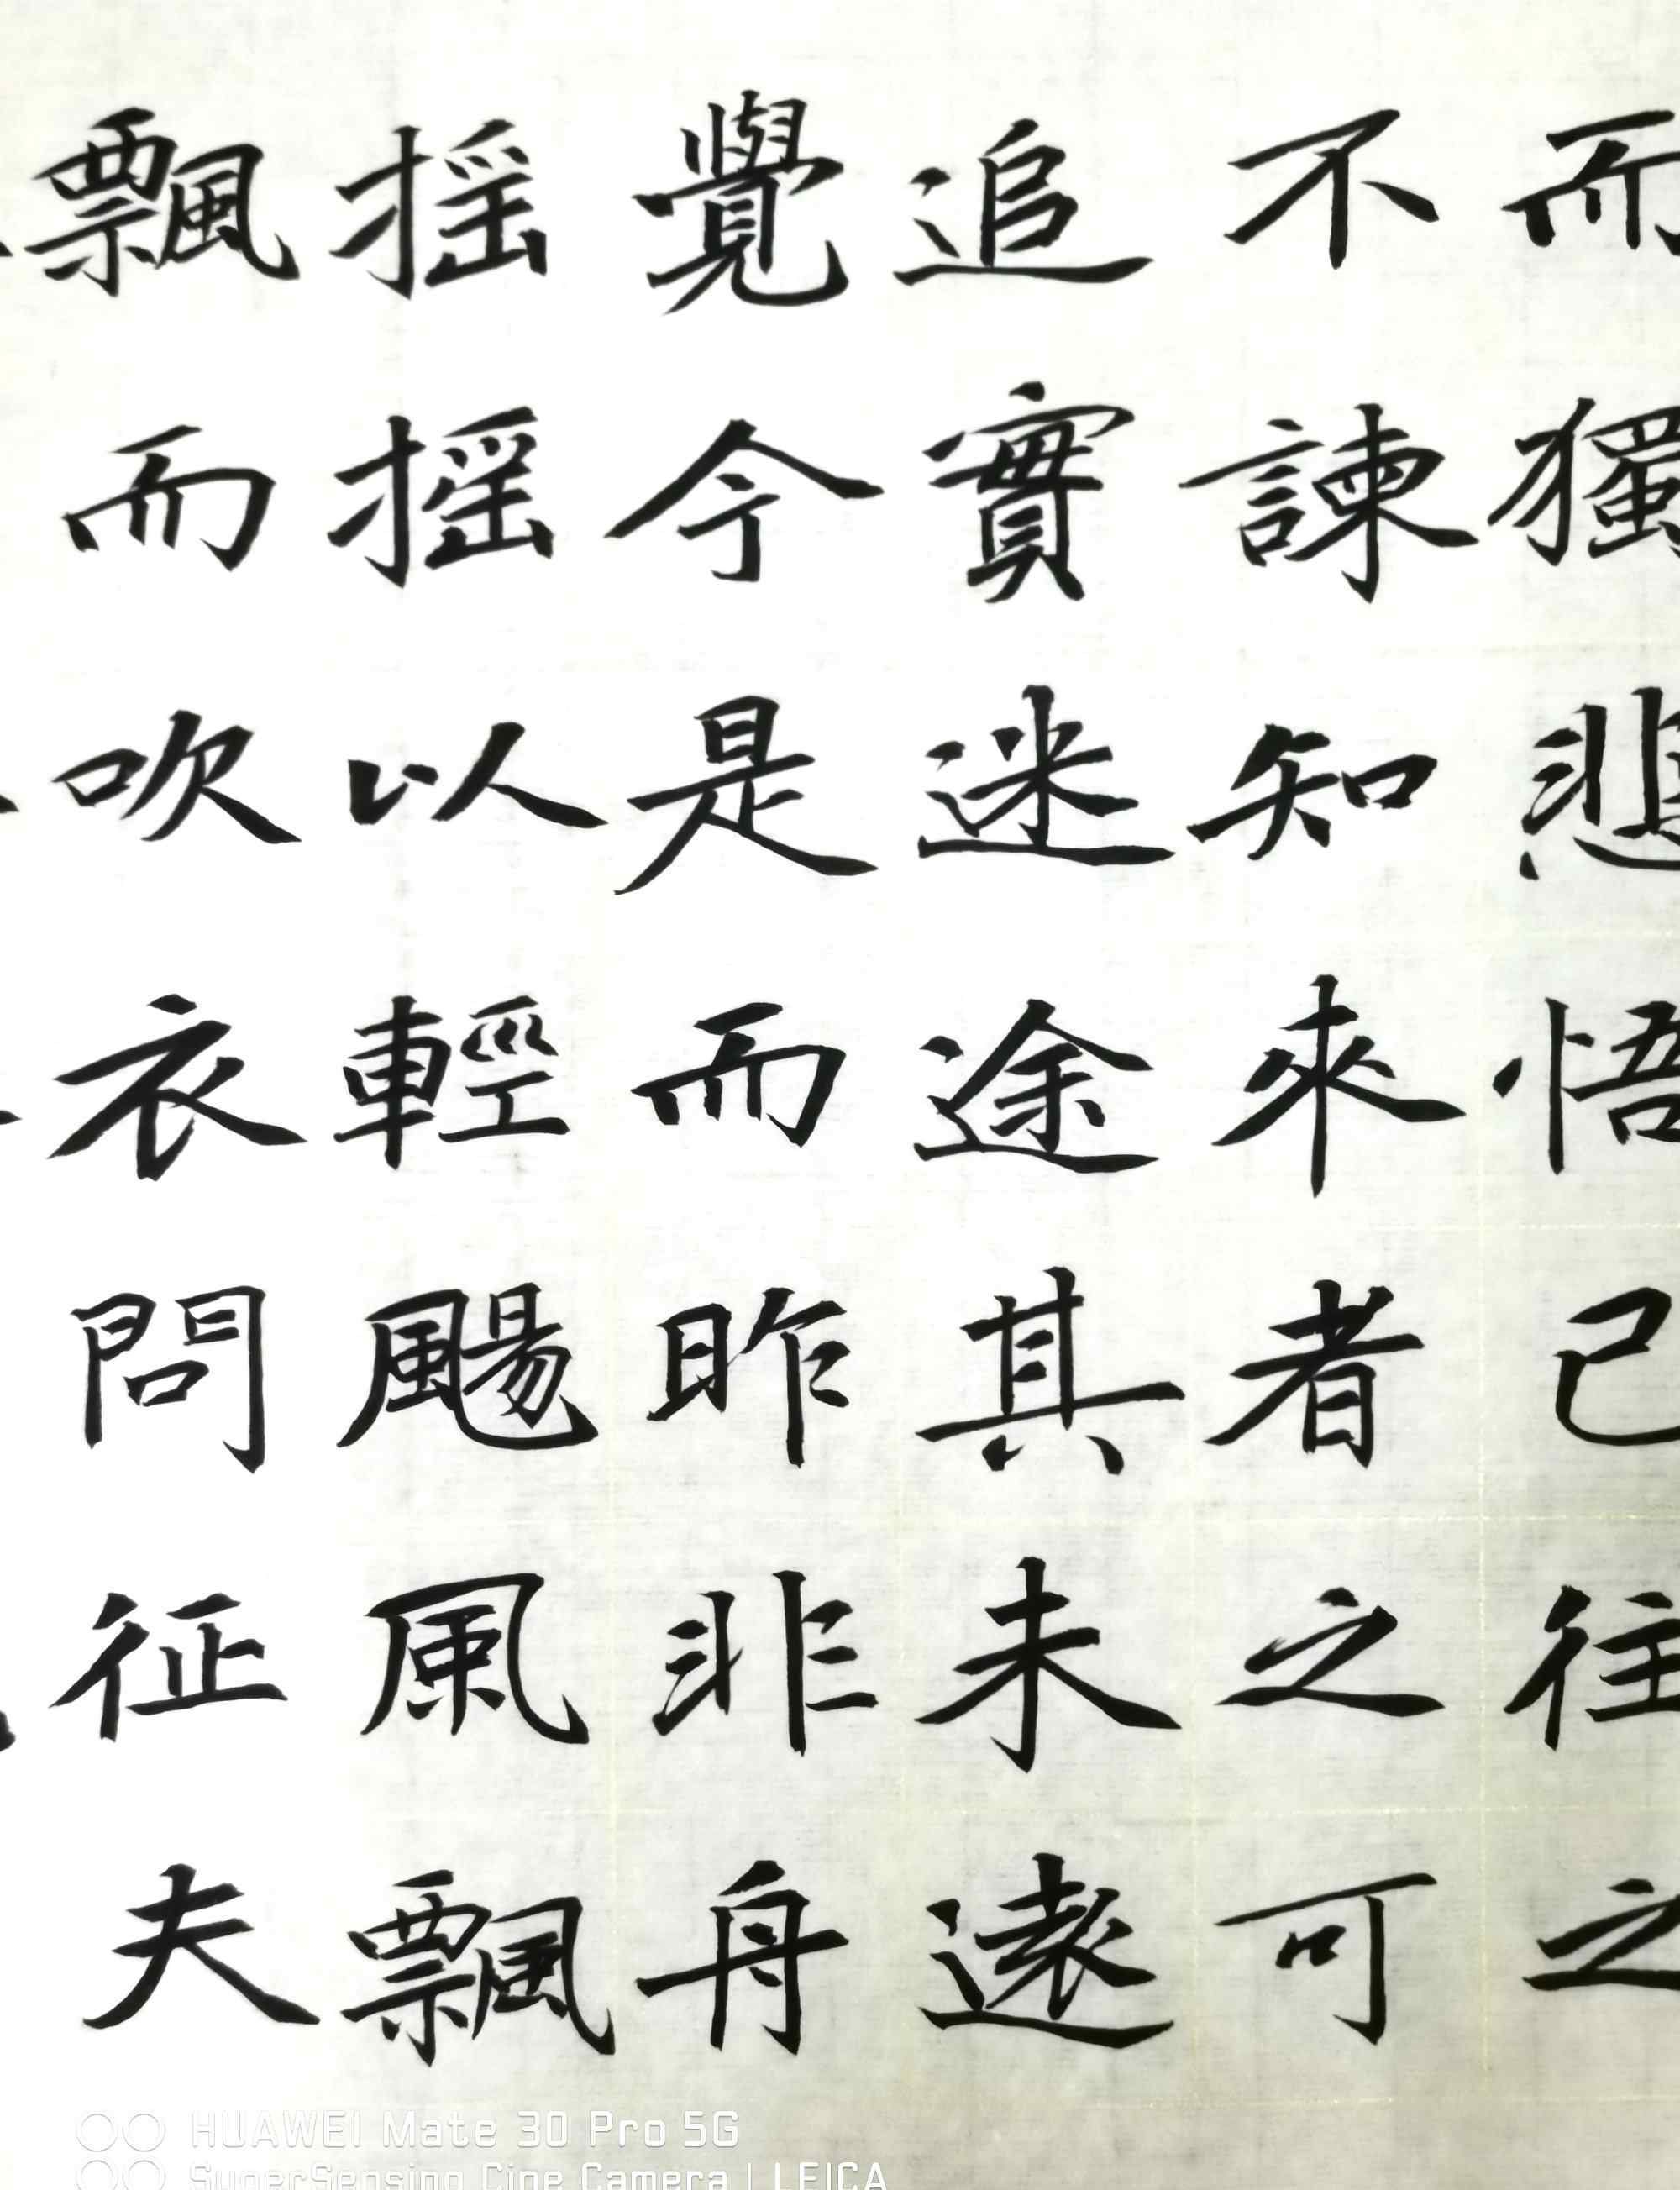 而獨悲悟已往之
不諫知來者之可
追實迷途其未遠
覺今是而昨非舟
搖搖以輕颺風飄
飄而吹衣問征夫
HUAWEI Mate 30 Pro 5G
SuperSensing Cine Camera | LEICA